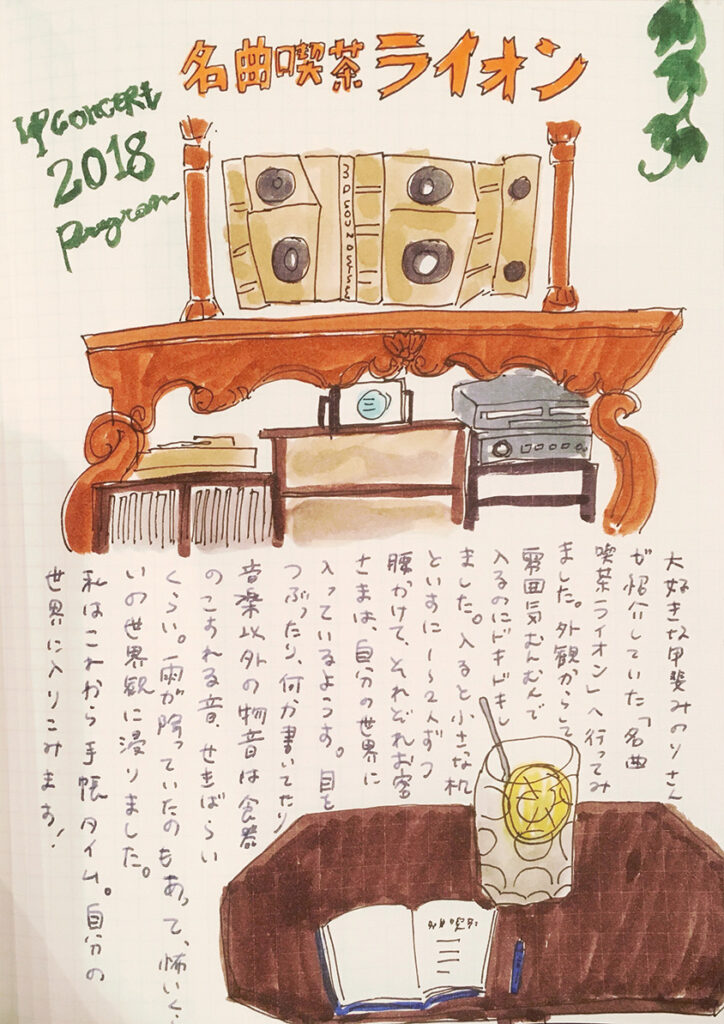 名曲喫茶ライオン
LP CONCERT
2018
Program
3D SOUND STSE
大好きな甲斐みのりさん
が紹介していた「名曲
喫茶ライオン」へ行ってみ
ました。外観からして
雰囲気むんむんで
入るのにドキドキし
ました。入ると小さな机
といすに1〜2人ずつ
腰かけて、それぞれお客
さまは、自分の世界に
入っているようす。目を
つぶったり、何か書いてたり
音楽以外の物音は食器
のこすれる音、せきばらい
くらい。雨が降っていたのもあって、怖いくら
いの世界観に浸りました。
私はこれから手帳タイム。自分の
世界に入りこみます!
名曲喫茶